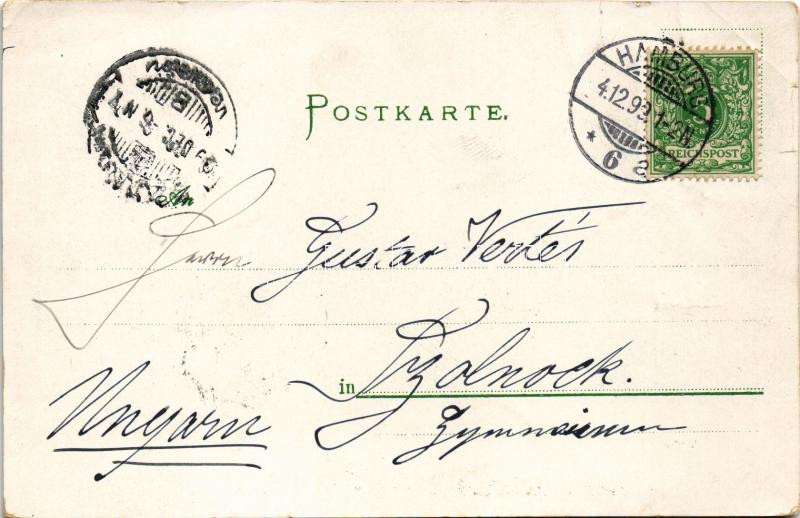 POSTKARTE.
HAMBURG
4.12.99. 1-2 N.
* 6 a
REICHSPOST
An
Herrn Gustav Vertés
in Szolnock.
Gymnasium
Ungarn